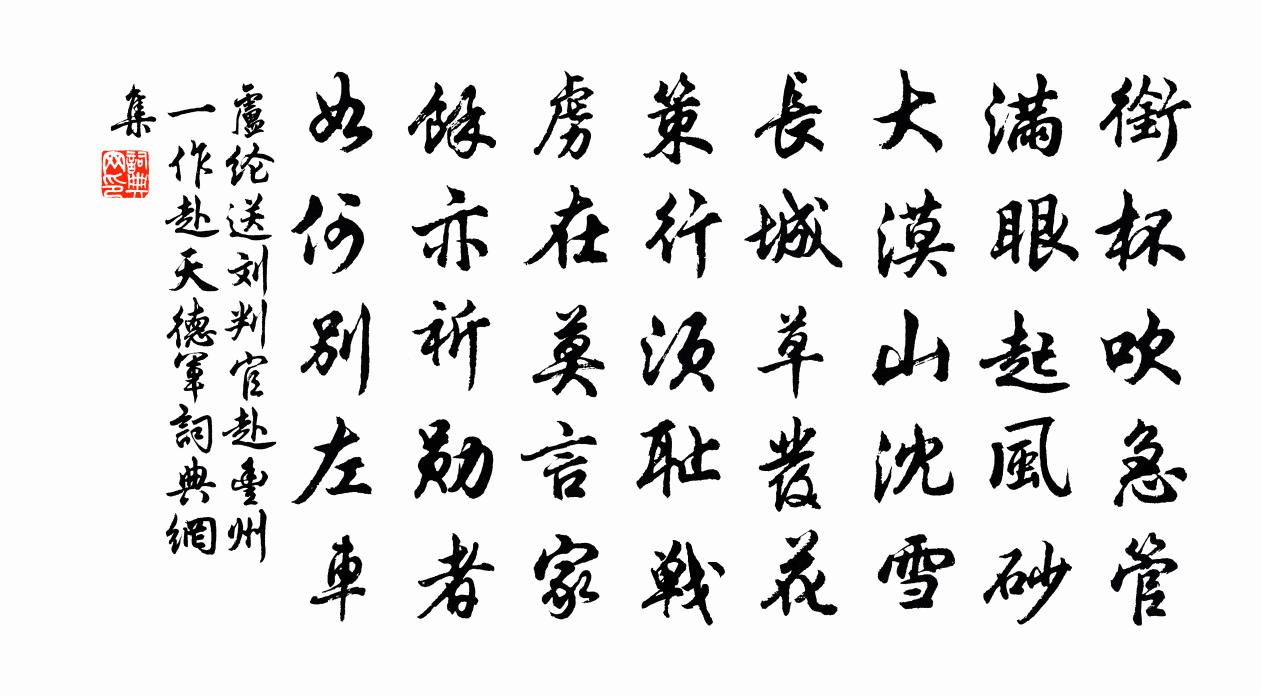 銜杯吹急管
满眼起風砂
大漠山沈雪
長城草發花
策行須耻戦
虜在莫言家
餘亦祈勛者
如何别左車
盧纶送刘判官赴豊州
一作赴天德軍詞典網
集
詞典网印